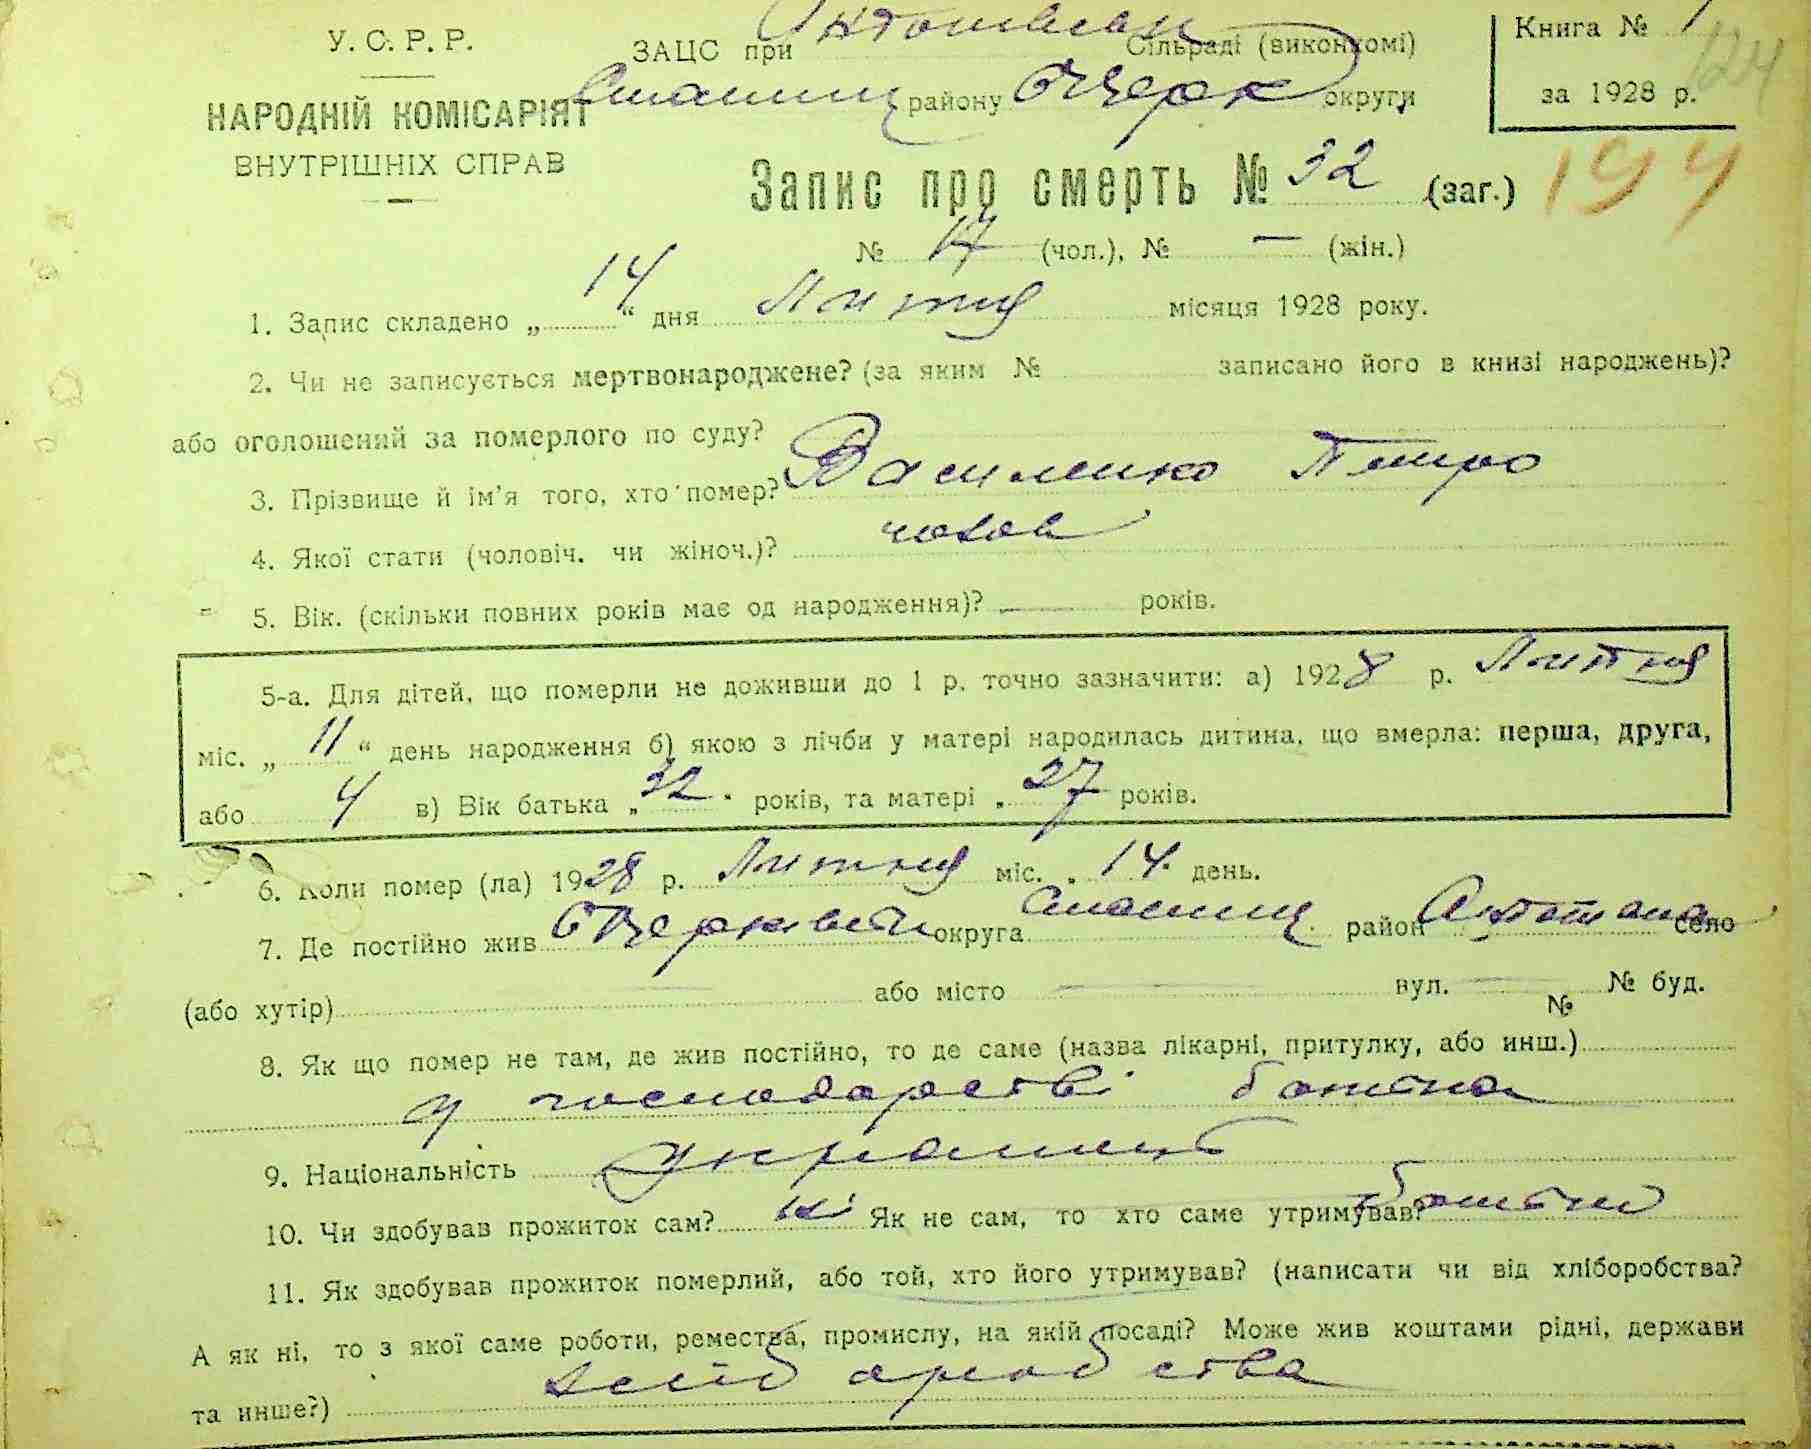 У. С. Р. Р.
НАРОДНІЙ КОМІСАРІЯТ
ВНУТРІШНІХ СПРАВ
ЗАЦС при Сільраді (виконкомі)
району БЦерк округи
Книга № 1
за 1928 р.
124
Запис про смерть № 32 (заг.) 194
№ 17 (чол.), № — (жін.)
1. Запис складено „ 14 “ дня Липня місяця 1928 року.
2. Чи не записується мертвонароджене? (за яким № записано його в книзі народжень)?
або оголошений за померлого по суду?
3. Прізвище й ім'я того, хто помер? Василенко Петро
4. Якої стати (чоловіч. чи жіноч.)? чолов
5. Вік. (скільки повних років має од народження)? — років.
5-а. Для дітей, що померли не доживши до 1 р. точно зазначити: а) 1928 р. Липня
міс. „ 11 “ день народження б) якою з лічби у матері народилась дитина, що вмерла: перша, друга,
або 4 в) Вік батька „ 32 “ років, та матері „ 27 років.
6. Коли помер (ла) 1928 р. Липня міс. „ 14 день.
7. Де постійно жив БЦерківськ округа район село
(або хутір) — або місто — вул. — № буд.
№
8. Як що помер не там, де жив постійно, то де саме (назва лікарні, притулку, або инш.)
у господарстві батька
9. Національність українець
10. Чи здобував прожиток сам? ні Як не сам, то хто саме утримував? батько
11. Як здобував прожиток померлий, або той, хто його утримував? (написати чи від хліборобства?
А як ні, то з якої саме роботи, ремества, промислу, на якій посаді? Може жив коштами рідні, держави
та инше?) хліборобства